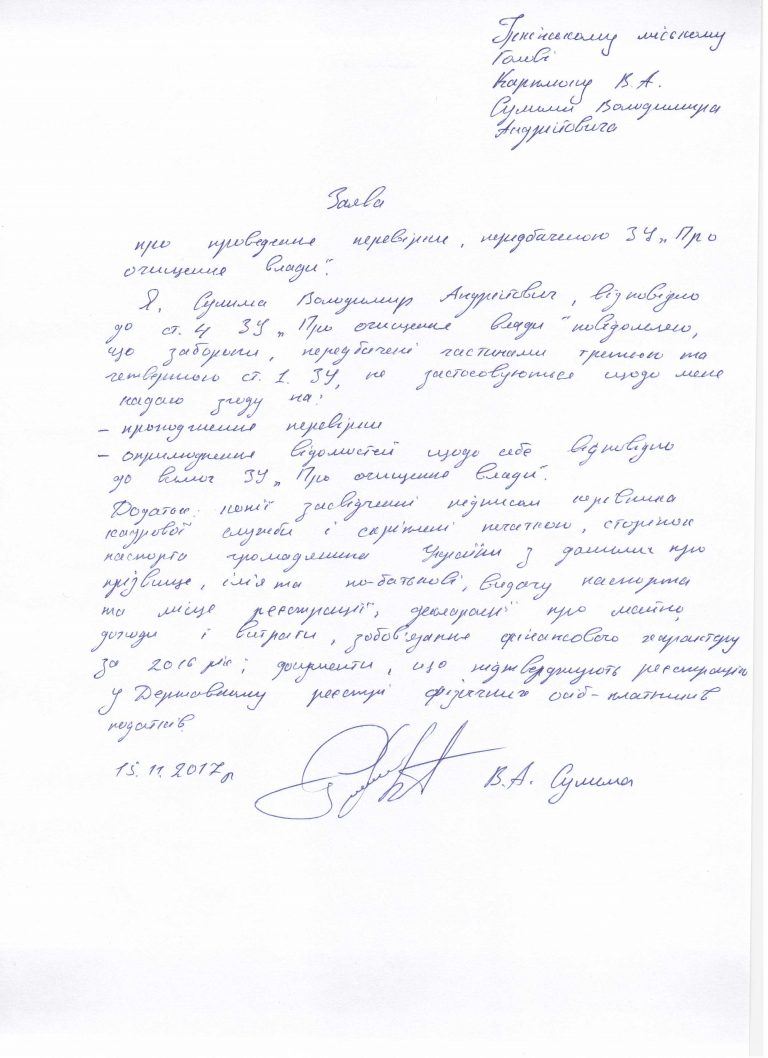 Ірпінському міському
Голові
Карплюку В.А.
Сулими Володимира
Андрійовича
Заява
про проведення перевірки, передбаченою ЗУ „Про
очищення влади".
Я, Сулима Володимир Андрійович, відповідно
до ст. 4 ЗУ „Про очищення влади" повідомляю,
що заборони, передбачені частинами третьою та
четвертою ст. 1. ЗУ, не застосовуються щодо мене
надаю згоду на:
– проходження перевірки
– оприлюднення відомостей щодо себе відповідно
до вимог ЗУ „Про очищення влади".
Додатки: копії засвідчені підписом керівника
кадрової служби і скріплені печаткою, сторінок
паспорта громадянина України з даними про
прізвище, ім'я та по-батькові, видачу паспорта
та місце реєстрації; декларації про майно,
доходи і витрати, зобов'язання фінансового характеру
за 2016 рік; документи, що підтверджують реєстрацію
у Державному реєстрі фізичних осіб-платників
податків.
15.11.2017р В.А. Сулима